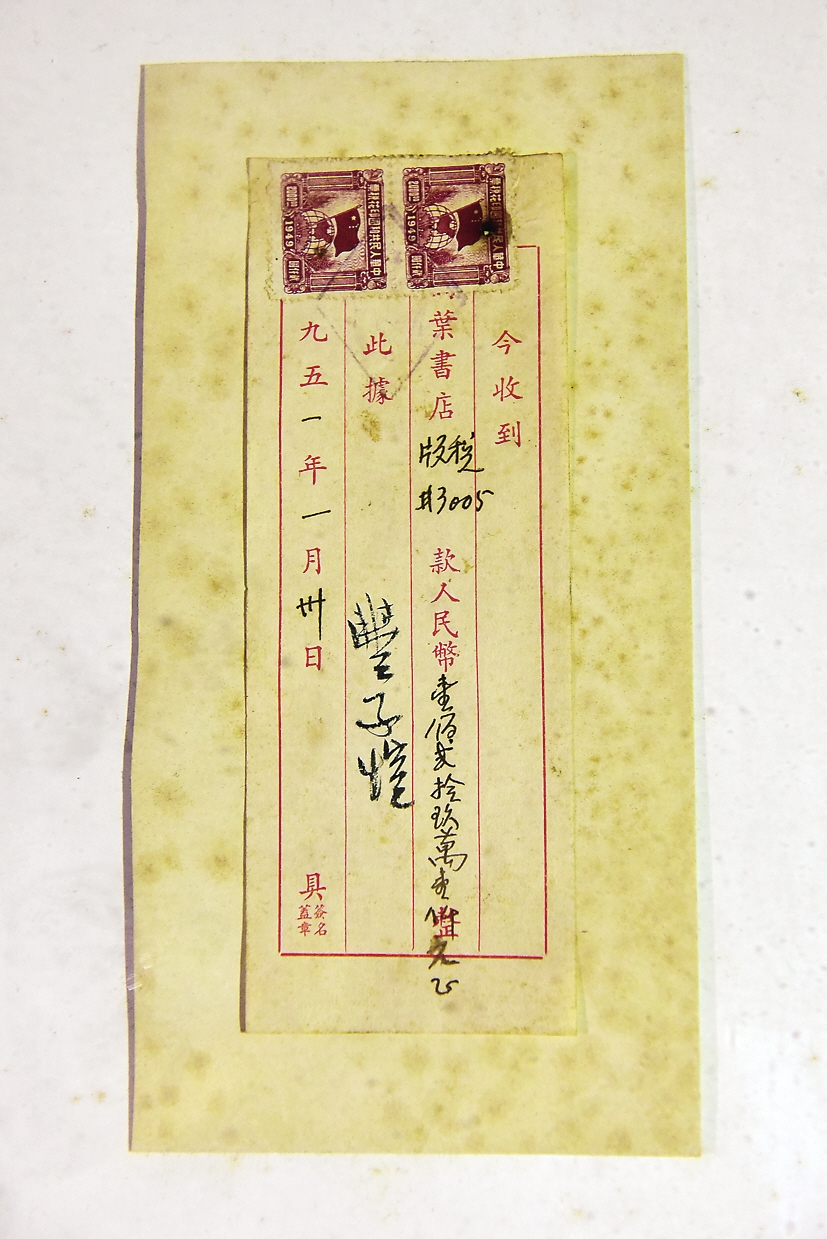 今收到
葉書店版稅#3005款人民幣壹佰貳拾玖萬壹仟元正
此據
豐子愷
九五一年一月卅日
具簽名蓋章
中華人民共和國印花稅票
1949
中華人民共和國印花稅票
1949